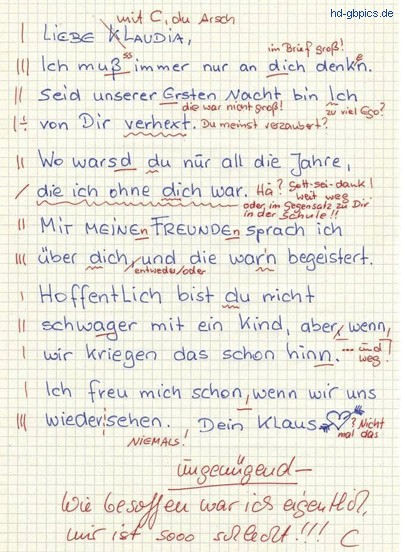 hd-gbpics.de
mit C, du Arsch
Liebe Klaudia,
im Brief groß!
ss e
Ich muß immer nur an dich denk'n.
Seid unserer Ersten Nacht bin Ich
die war nicht groß! zu viel Ego?
von Dir verhext. Du meinst verzaubert?
Wo warsd du nur all die Jahre,
die ich ohne dich war. Hä? Gott-sei-dank!
weit weg
oder, im Gegensatz zu Dir
in der Schule!!
Mit meinen Freunden sprach ich
über dich, und die war'n begeistert.
entweder/oder
Hoffentlich bist du nicht
schwager mit ein Kind, aber, wenn,
wir kriegen das schon hinn. ... und weg!
Ich freu mich schon, wenn wir uns
wiedersehen. Dein Klaus ? Nicht
mal das
NIEMALS!
ungenügend
Wie besoffen war ich eigentlich,
mir ist sooo schlecht!!! C